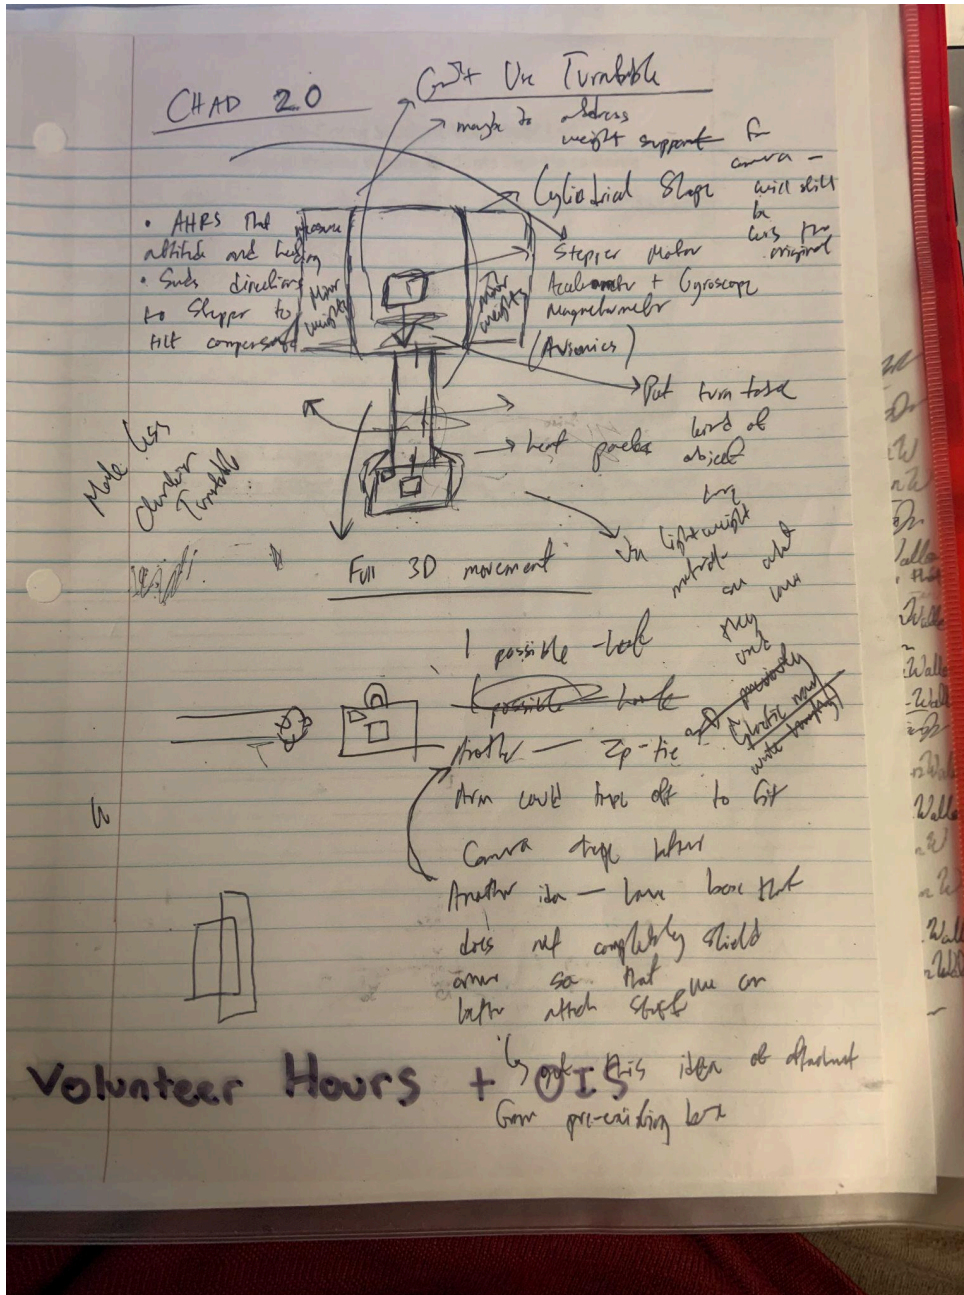 CHAD 2.0
Use Turntable
maybe to address
weight support for
camera –
will still
be
less than
original
Cylindrical Shape
• AHRS that measure
attitude and heading
• Sends directions
to Stepper to
tilt compensate
Minor
weights
Minor
weights
Stepper Motor
Accelerometer + Gyroscope
Magnetometer
(Avionics)
Put turn table
kind of
object
heat packs
Make less
clunkier
Turntable
lightweight
on what
they have
Full 3D movement
1 possible – hook
possible hook
Another — Zip-tie
previously
Arm could taper off to fit
Camera shape better
Another idea — have base that
does not completely shield
armor so that we can
better attach stuff
↳ got this idea of attachment
from pre-existing box
Volunteer Hours + OIS